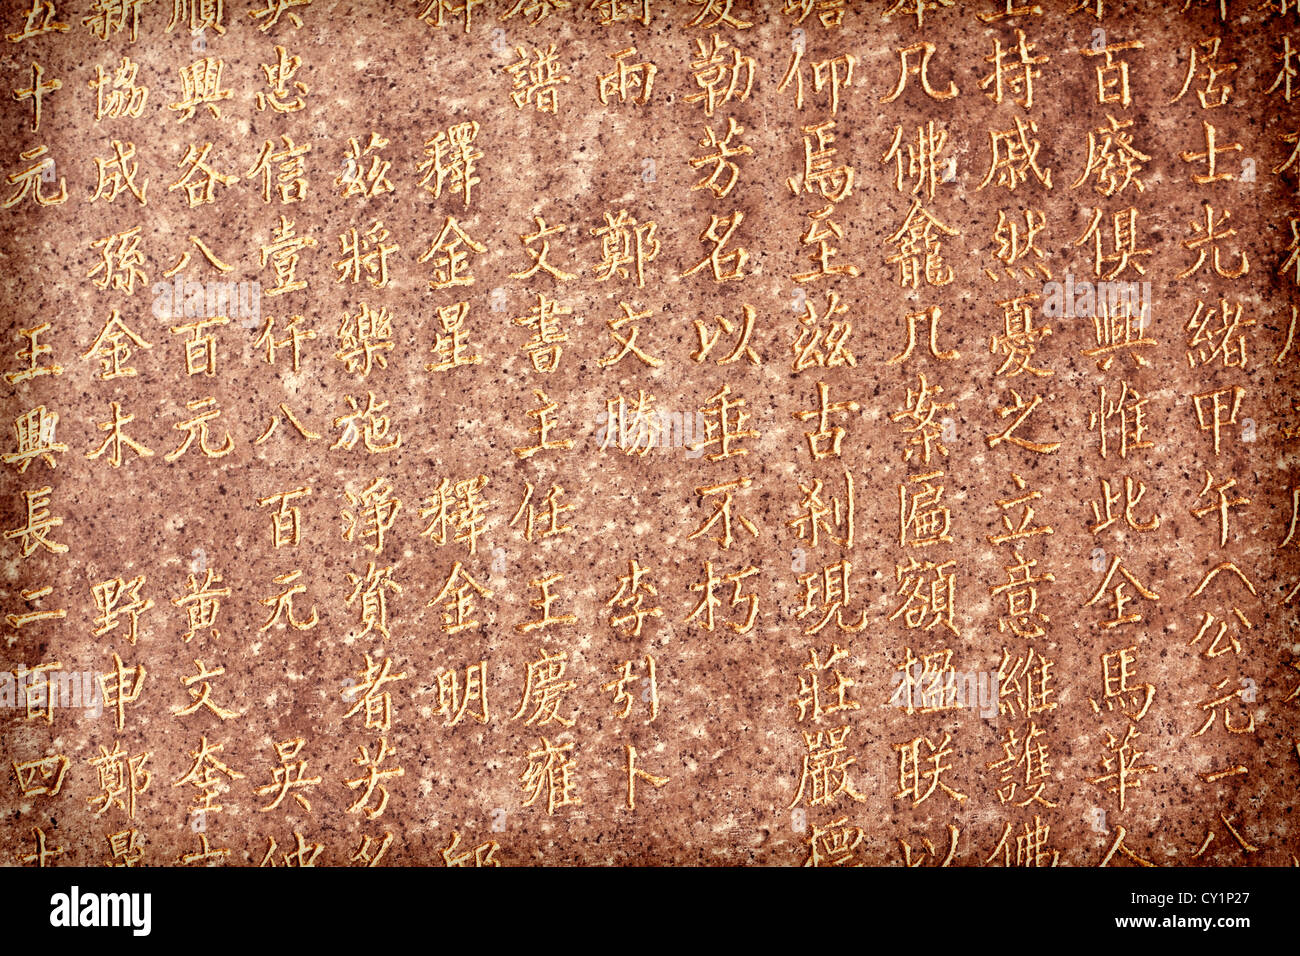 居士光緒甲午(公元一八
百廢俱興惟此全馬華人
士持戚然憂之立意維護佛
本凡佛龕几案匾額楹联以
瞻仰焉至茲古剎現莊嚴
爰勒芳名以垂不朽
劉兩 鄭文勝 李引卜
譜 文書主任 王慶雍
釋 釋金星 釋金明 邱
茲將樂施淨資者芳名
吳忠信壹仟八百元 吳
順興各八百元 黃文奎
新協成 孫金木 野申 鄭
五十元 王興長 二百四十
alamy
Image ID: CY1P27
www.alamy.com